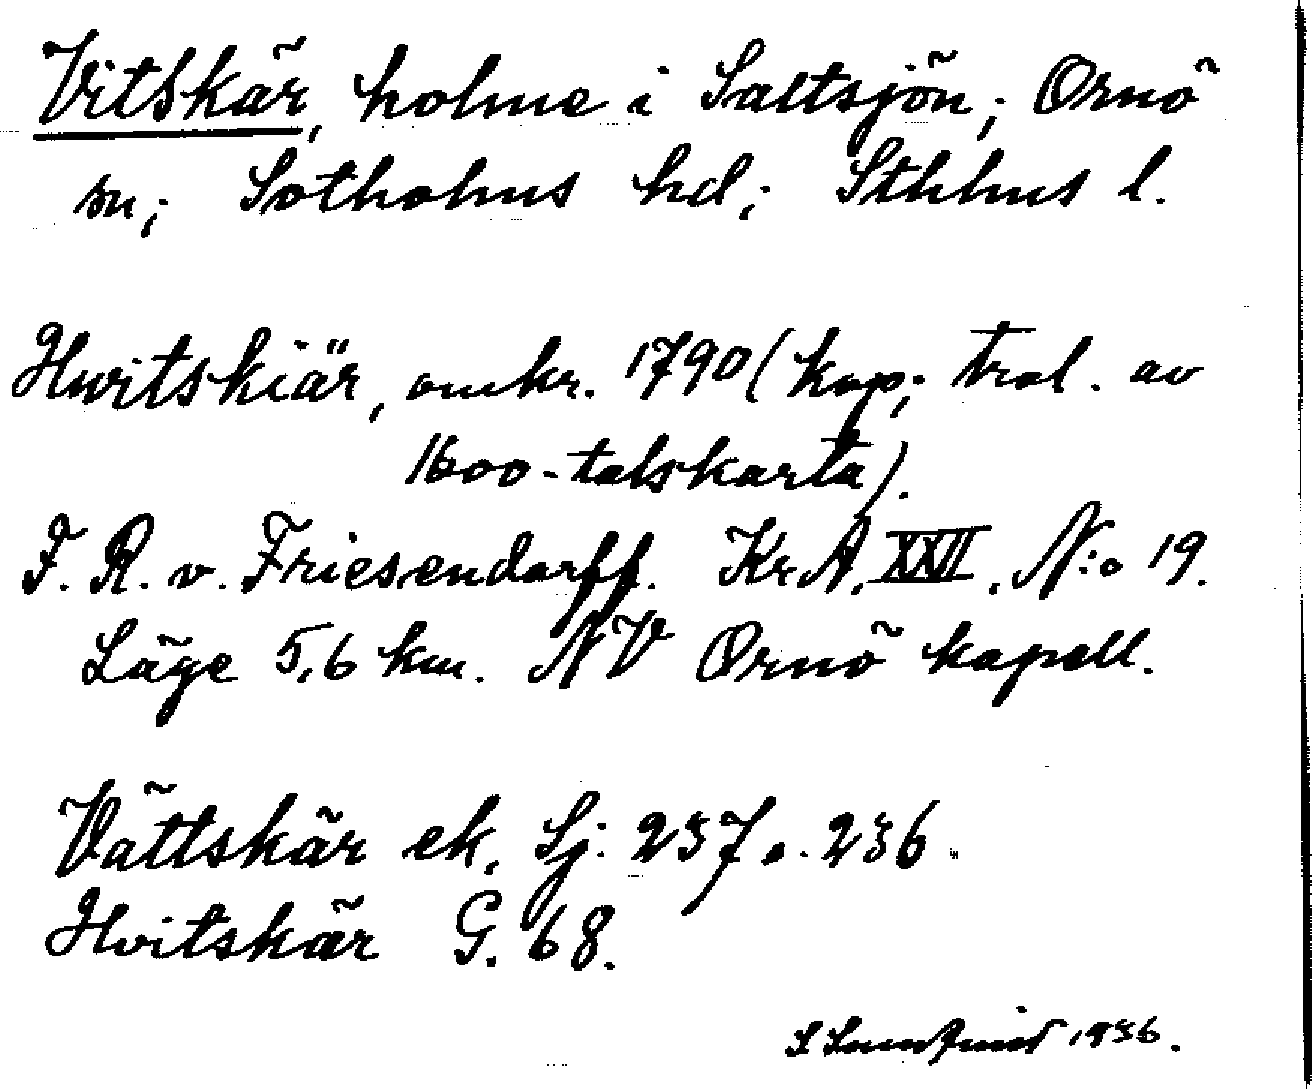 Vitskär, holme i Saltsjön; Ornö
sn; Sotholms hd; Sthlms l.
Hwitskiär, omkr. 1790 (kop; trol. av
1600-talskarta).
F. R. v. Friesendorff. KrA. XXII. N:o 19.
Läge 5,6 km. NV Ornö kapell.
Vättskär ek. Sj. 237 o. 236.
Hvitskär G. 68.
S 1936.